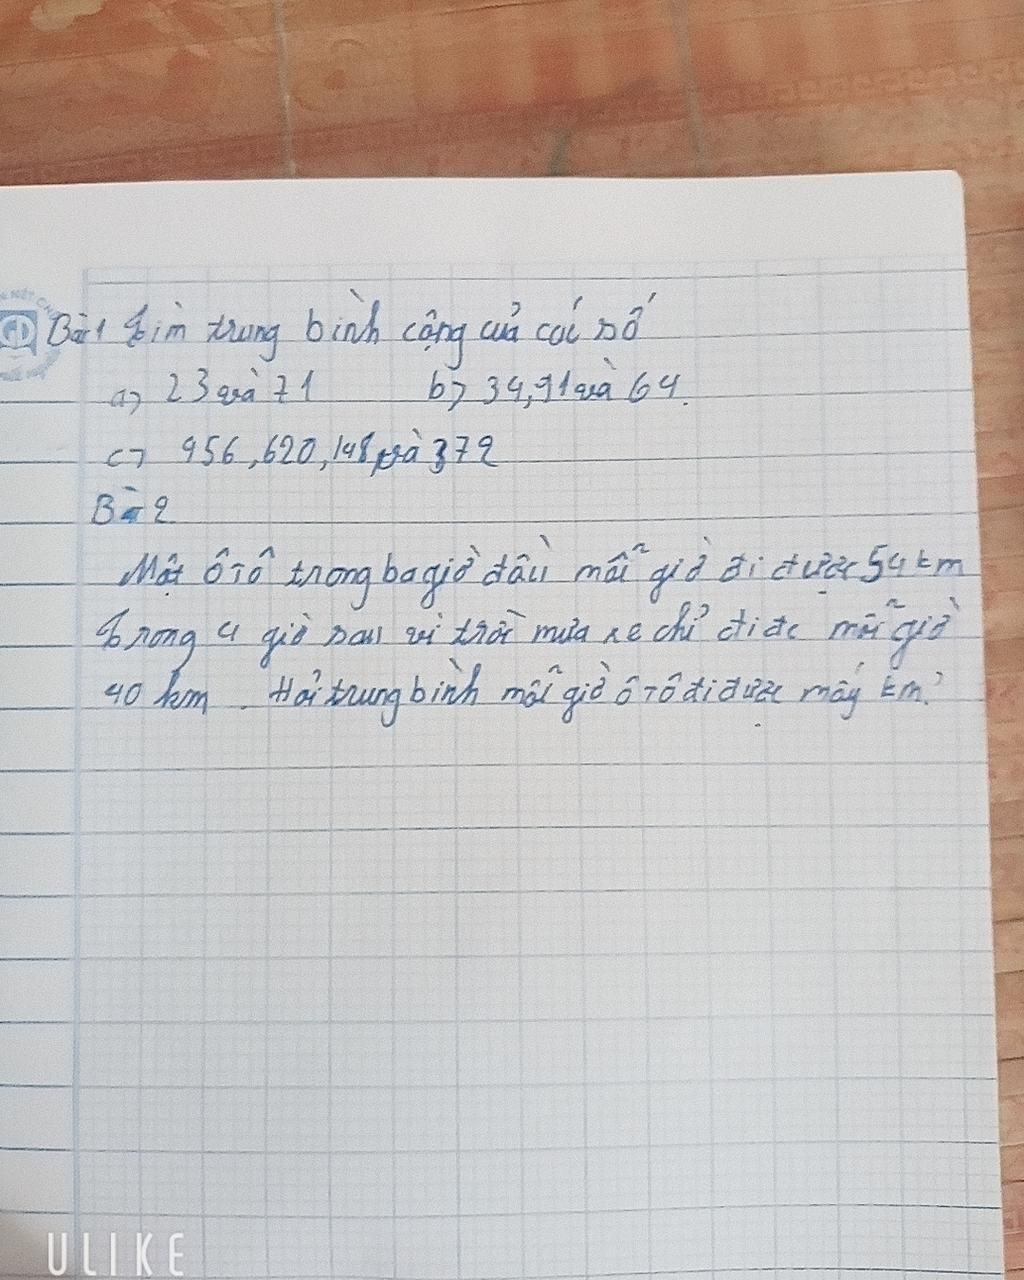 Bài 1 Tìm trung bình cộng của các số
a) 23 và 71 b) 34, 91 và 64.
c) 956, 620, 148 và 372
Bài 2
Một ô tô trong ba giờ đầu mỗi giờ đi được 54 km
Trong 4 giờ sau vì trời mưa xe chỉ đi đc mỗi giờ
40 km. Hỏi trung bình mỗi giờ ô tô đi được mấy km?
ULIKE